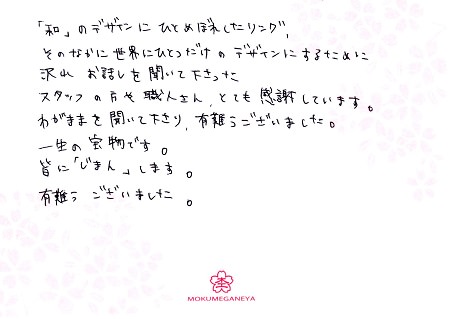 「和」のデザインにひとめぼれしたリング、
そのなかに世界にひとつだけのデザインにするために
沢山 お話しを聞いて下さった
スタッフの方や職人さん、とても感謝しています。
わがままを聞いて下さり、有難うございました。
一生の宝物です。
皆に「じまん」します。
有難うございました。
MOKUMEGANEYA